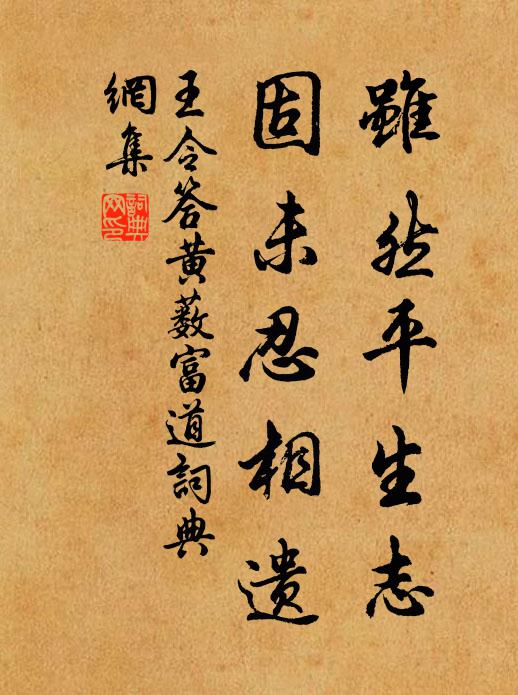 雖然平生志
固未忍相遗
王令答黄薮富道詞典
網集
詞典
网印